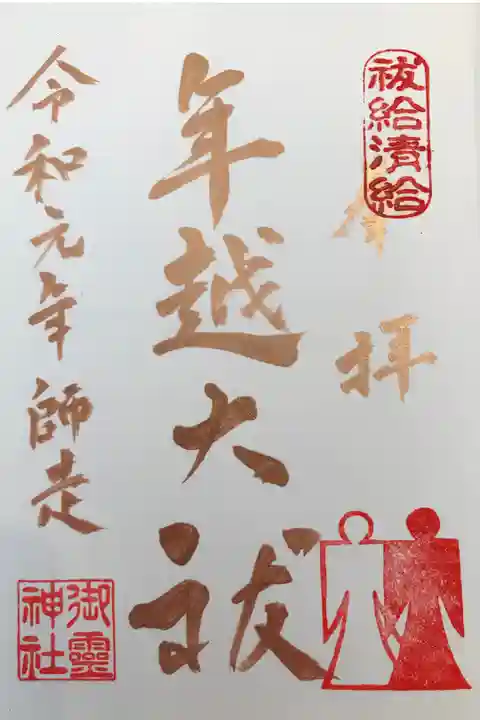 祓給清給
奉拝
年越大祓
令和元年師走
御霊
神社